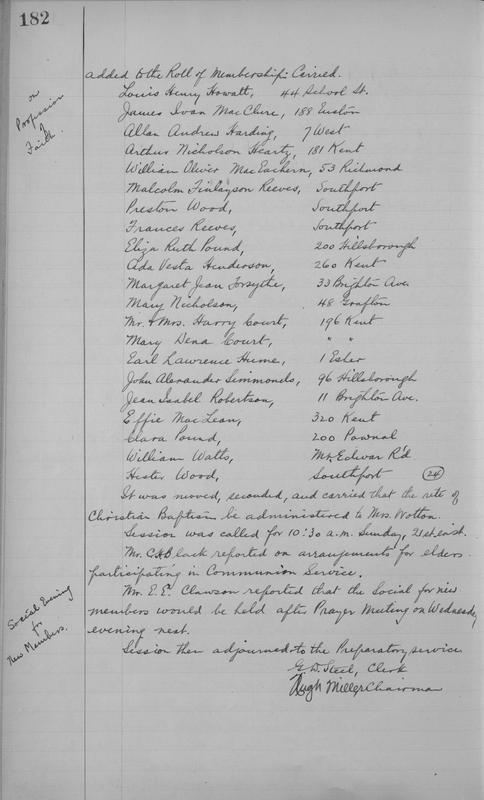 182
added to the Roll of Membership: Carried.
on
Profession
of
Faith.
Louis Henry Howatt, 44 School St.
James Ivan MacClure, 188 Euston
Allan Andrew Harding, 7 West
Arthur Nicholson Heartz, 181 Kent
William Oliver MacEachern, 53 Richmond
Malcolm Finlayson Reeves, Southport
Preston Wood, Southport
Frances Reeves, Southport
Eliza Ruth Pound, 200 Hillsborough
Ada Vesta Henderson, 260 Kent
Margaret Jean Forsythe, 33 Brighton Ave.
Mary Nicholson, 48 Grafton
Mr. & Mrs. Harry Court, 196 Kent
Mary Dena Court, " "
Earl Lawrence Hume, 1 Esher
John Alexander Simmonds, 96 Hillsborough
Jean Isabel Robertson, 11 Brighton Ave.
Effie MacLean, 320 Kent
Clara Pound, 200 Pownal
William Watts, Mt. Edwar R'd
Hester Wood, Southport 24
It was moved, seconded, and carried that the rite of
Christian Baptism be administered to Mrs. Wotton.
Session was called for 10:30 a.m. Sunday, 21st inst.
Mr. Black reported on arrangements for elders
participating in Communion Service.
Social Evening
for
New Members.
Mr. E. E. Clawson reported that the Social for new
members would be held after Prayer Meeting on Wednesday
evening next.
Session then adjourned to the Preparatory service
G. D. Steel, Clerk
Hugh Miller Chairman